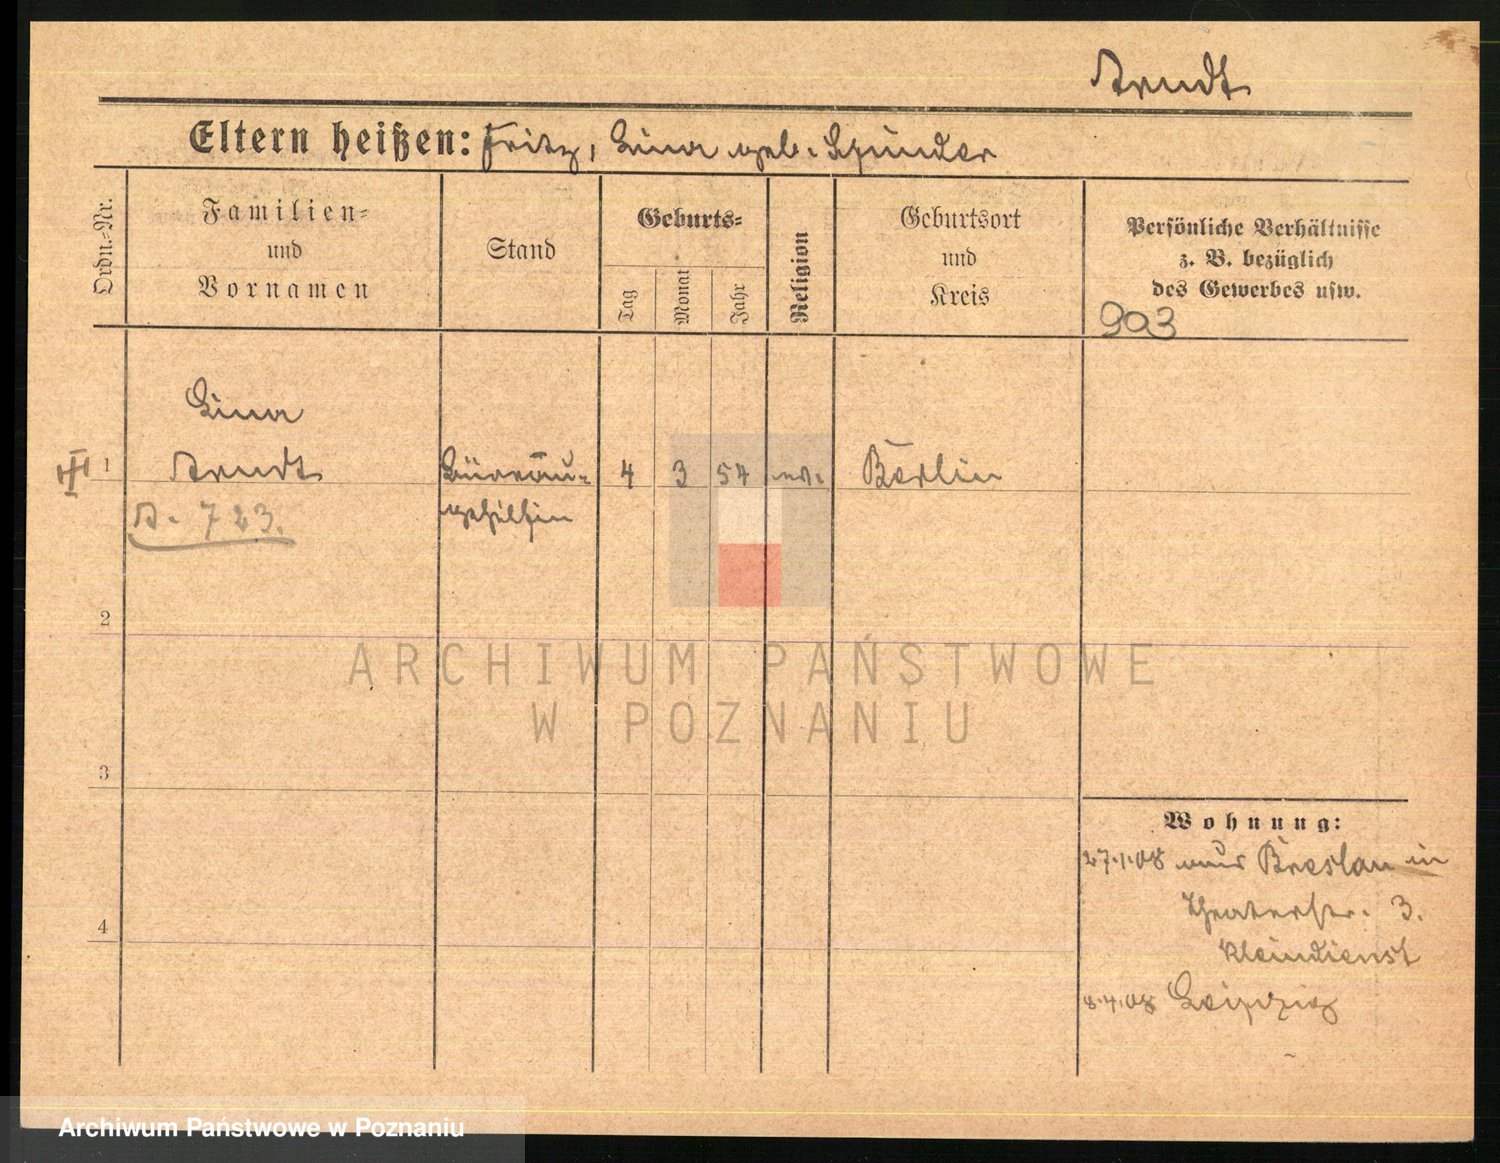 Arndt
Eltern heißen: Fritz, Lina geb. Spinder
Ordn.-Nr.
Familien-
und
Vornamen
Stand
Geburts-
Tag
Monat
Jahr
Religion
Geburtsort
und
Kreis
Persönliche Verhältnisse
z. B. bezüglich
des Gewerbes usw.
903
Lina
III 1 Arndt Büreau- 4 3 54 ev. Berlin
A. 723. gehilfin
2
ARCHIWUM PAŃSTWOWE
W POZNANIU
3
Wohnung:
27.1.08 aus Breslau in
Theaterstr. 3.
4
Kleindienst
8.4.08 Leipzig
Archiwum Państwowe w Poznaniu